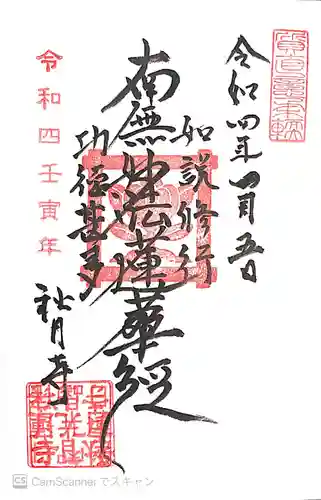 令和四年四月五日
如説修行
南無妙法蓮華経
功徳甚多
令和四壬寅年
秋月寺
CS CamScanner でスキャン